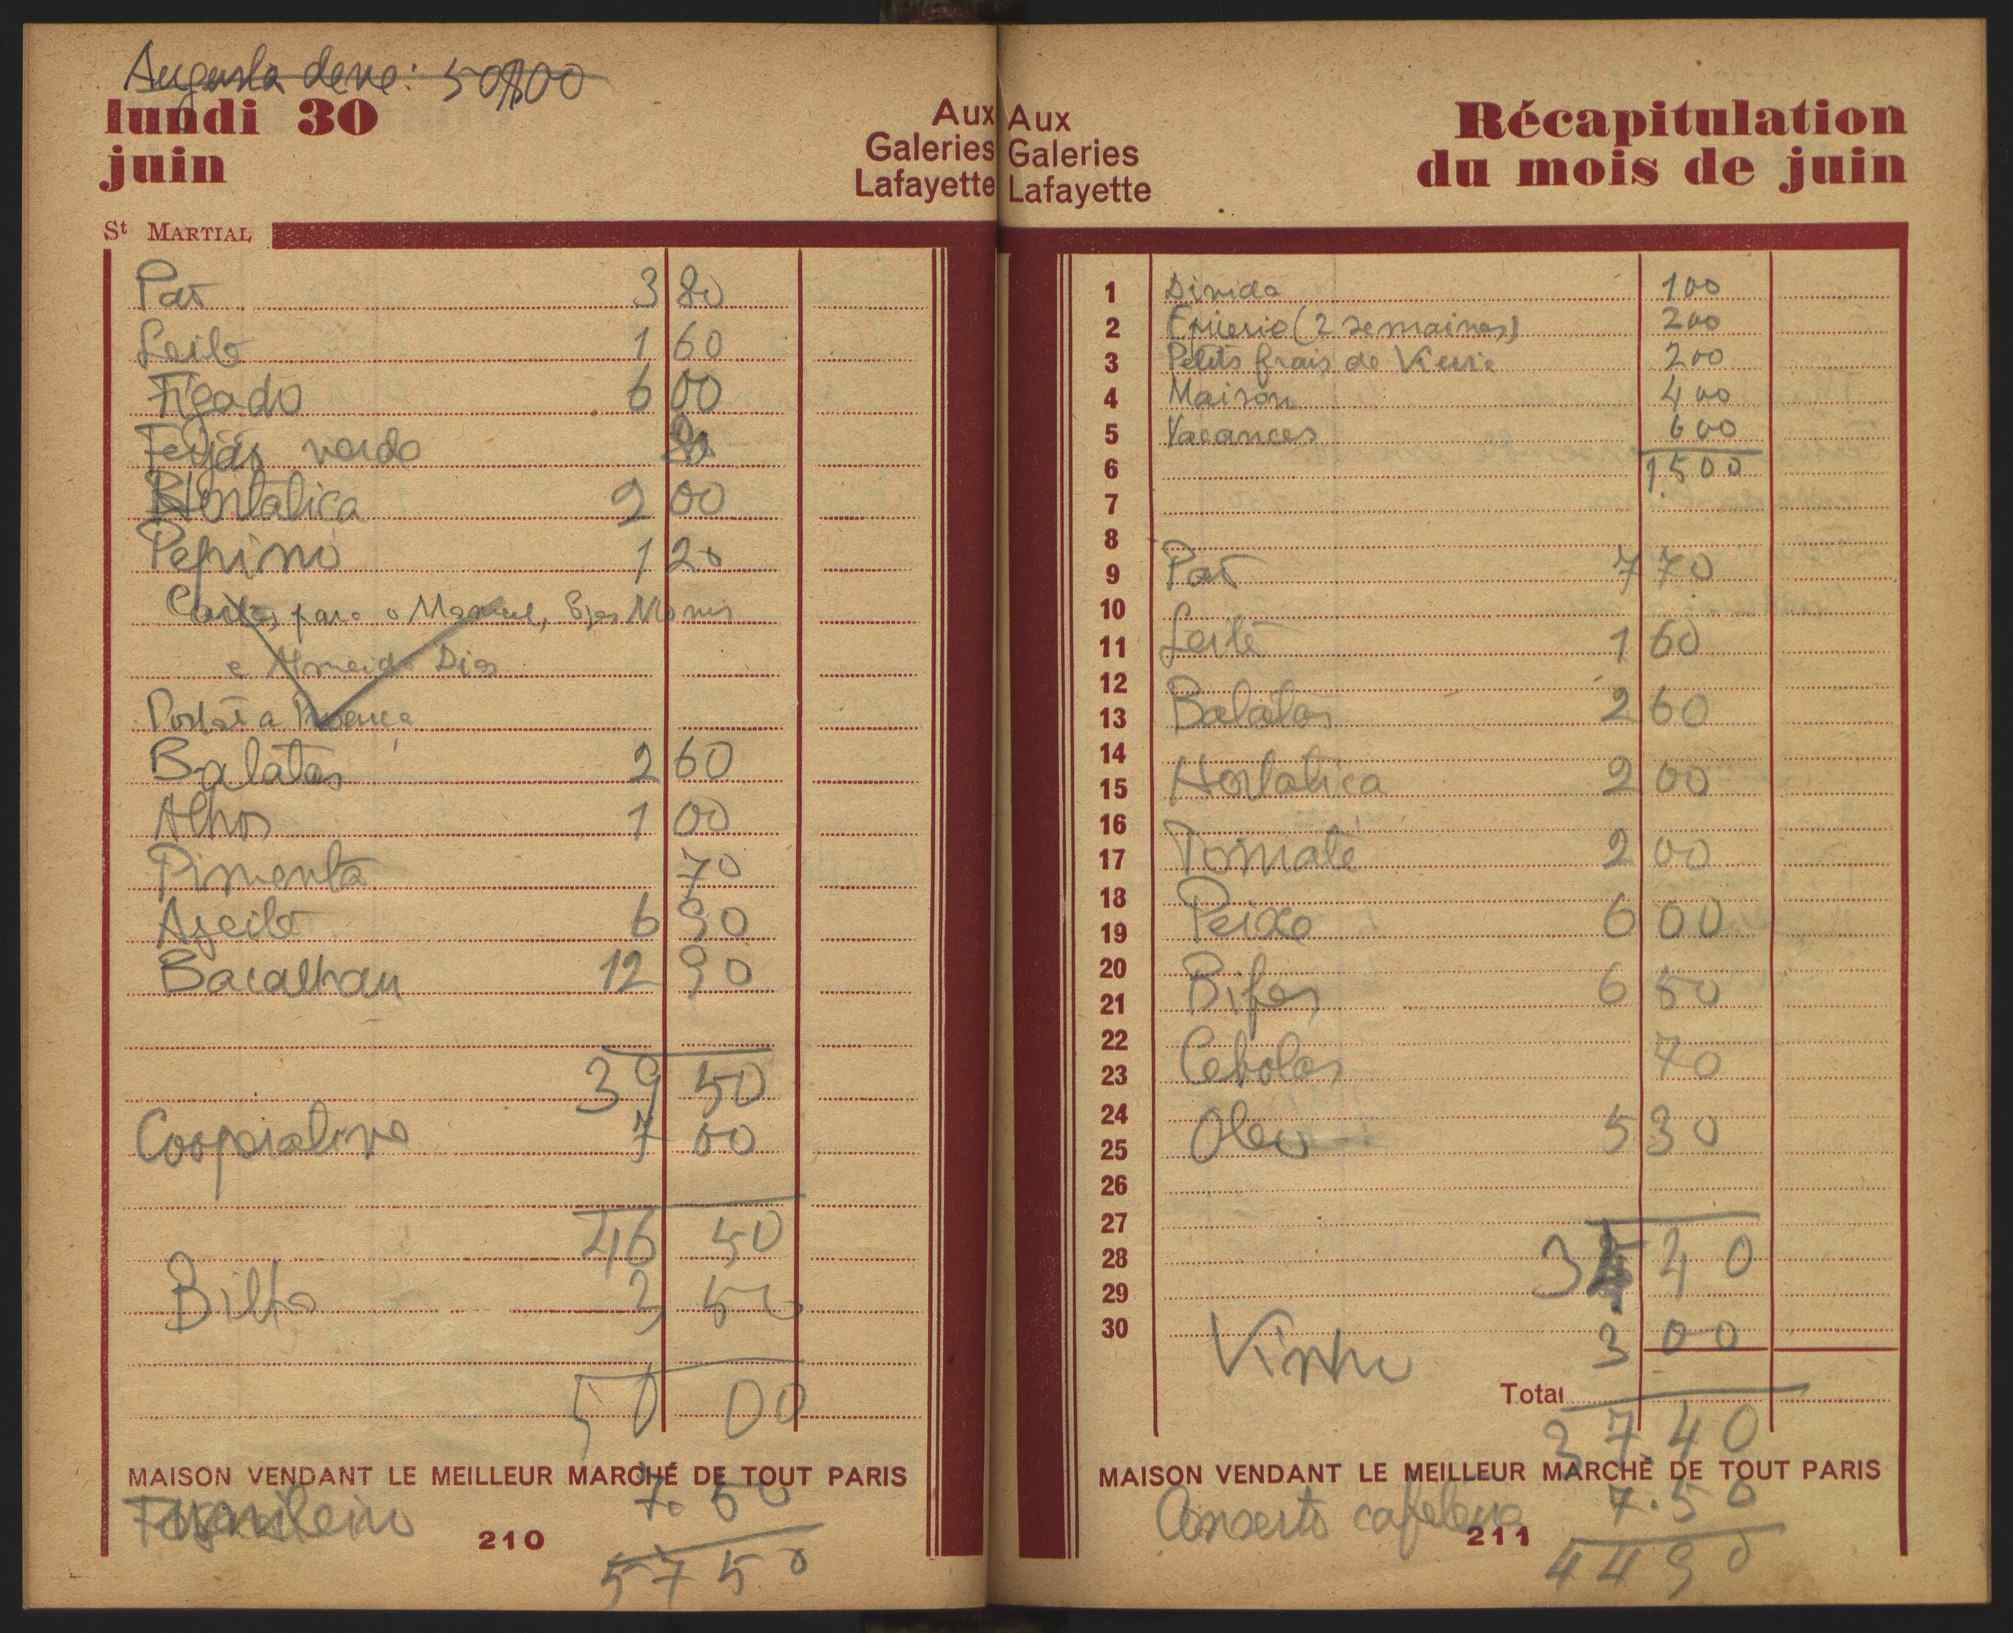 Augusta deve: 50$00
lundi 30
juin
Aux
Galeries
Lafayette
St MARTIAL
Pão 3 80
Leite 1 60
Fígado 6 00
Feijão verde 80
Hortaliça 2 00
Pepino 1 20
Cartas para o Manuel,
e Almeida Dias
Postal a Proença
Batatas 2 60
Alhos 1 00
Pimenta 70
Azeite 6 90
Bacalhau 12 90
39 50
Cooperativa 7 00
46 50
3 50
50 00
MAISON VENDANT LE MEILLEUR MARCHÉ DE TOUT PARIS
7.50
210
57 50
Aux
Galeries
Lafayette
Récapitulation
du mois de juin
1 Divida 100
2 Epicerie (2 semaines) 200
3 Petits frais de 200
4 Maison 400
5 Vacances 600
6 1.500
7
8
9 Pão 7 70
10
11 Leite 1 60
12
13 Batatas 2 60
14
15 Hortaliça 2 00
16
17 Tomate 2 00
18
19 Peixe 6 00
20
21 Bifes 6 50
22
23 Cebolas 70
24
25 Oleo 5 30
26
27
28 34 40
29
30 Vinho 3 00
Total
37.40
MAISON VENDANT LE MEILLEUR MARCHÉ DE TOUT PARIS
Conserto cafeteira 7.50
211
44 90